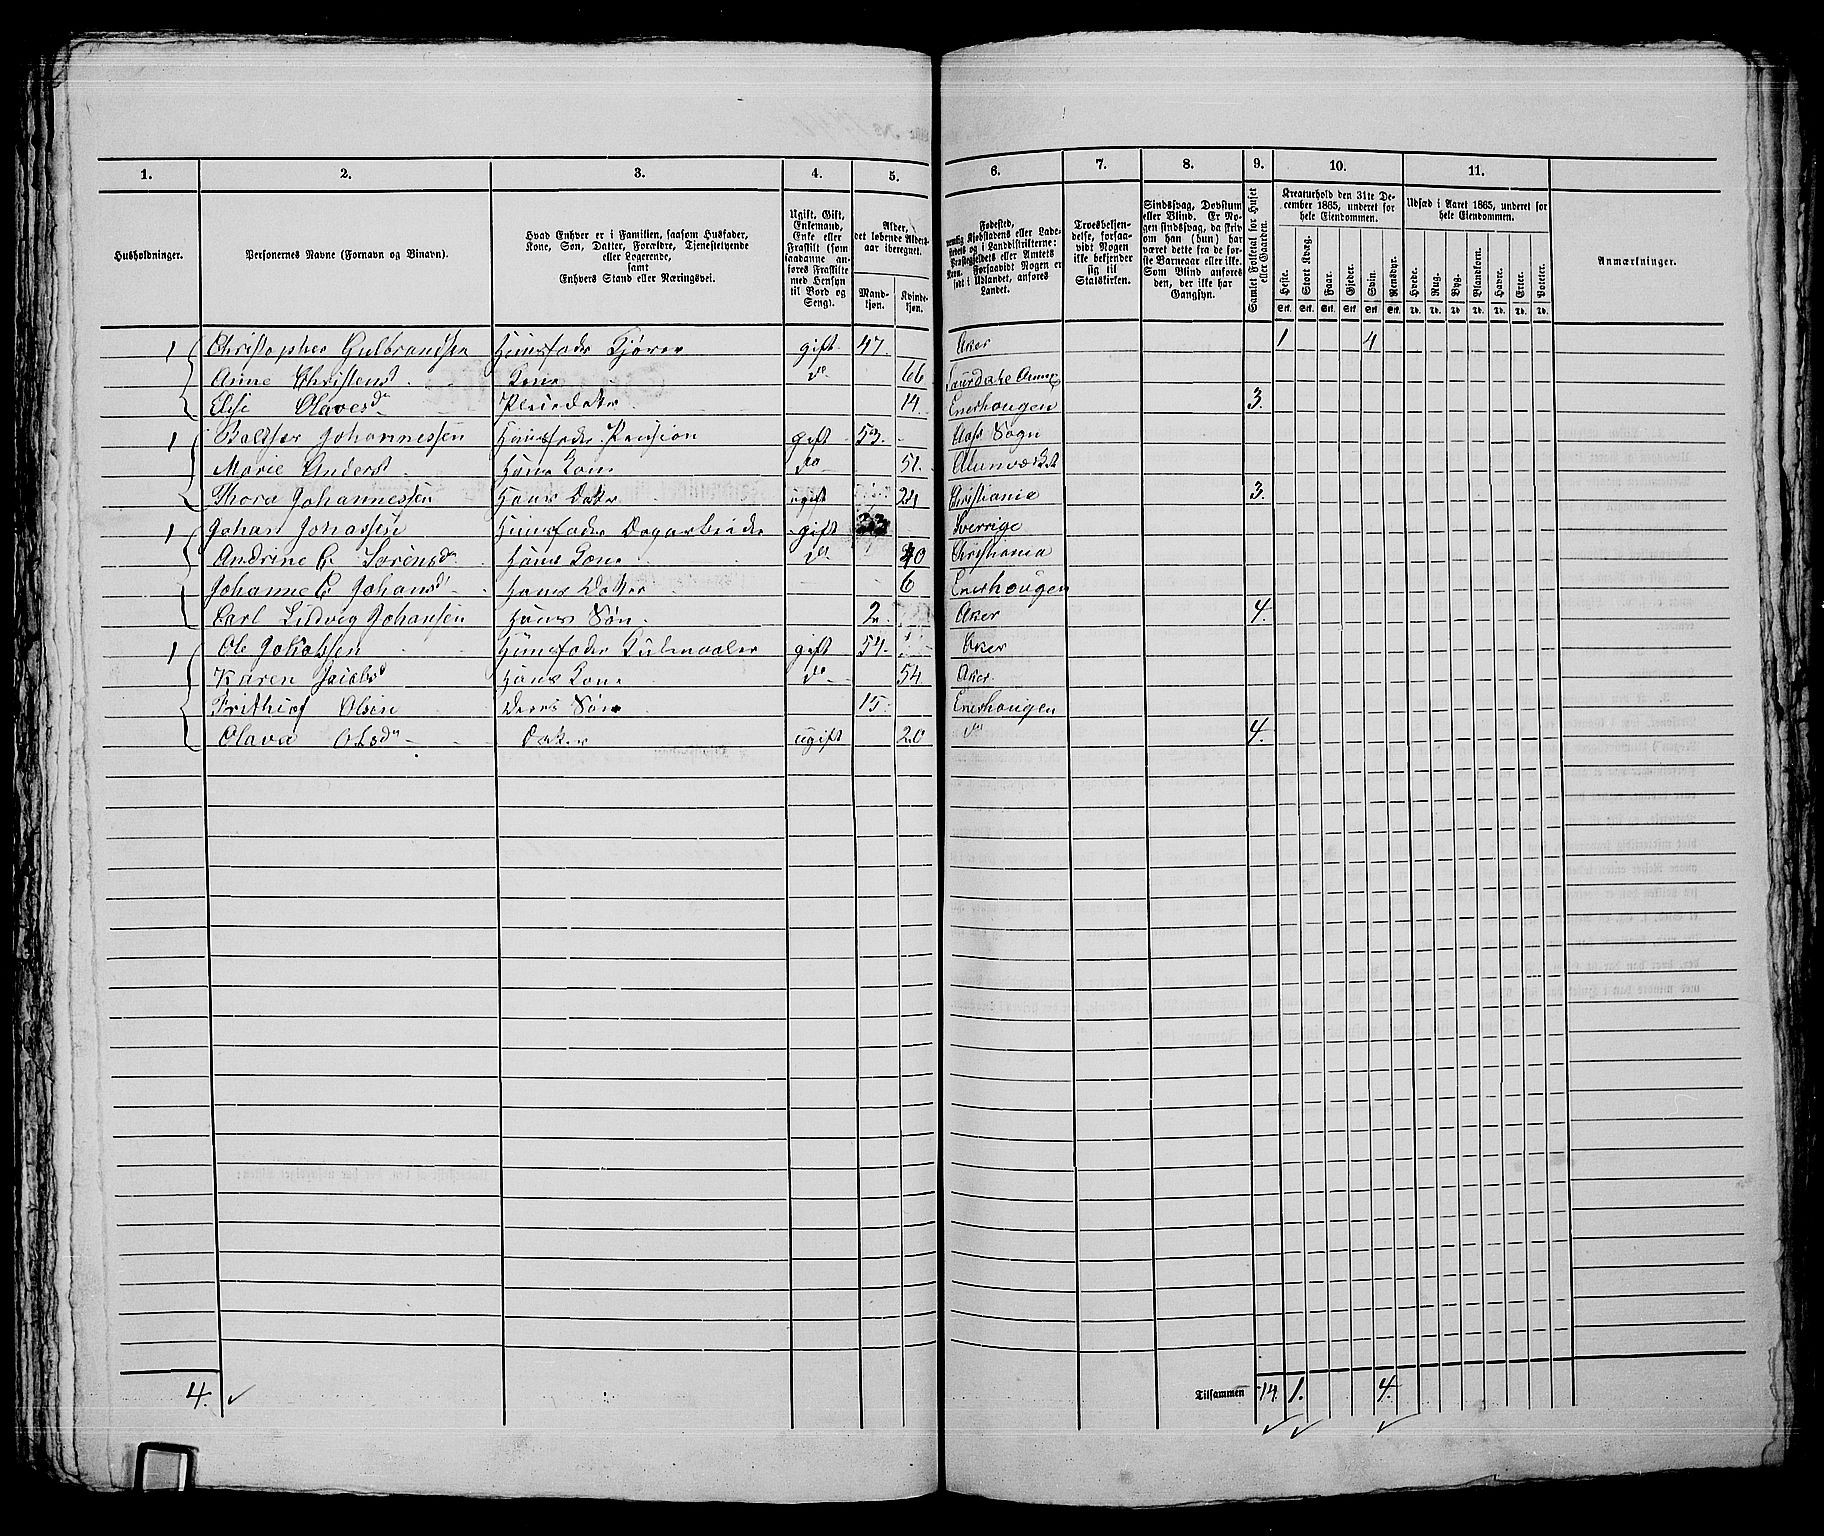 1. 2. 3. 4. 5. 6. 7. 8. 9. 10. 11.
Husholdninger.
Personernes Navne (Fornavn og Binavn).
Hvad Enhver er i Familien, saasom Husfader,
Kone, Søn, Datter, Forældre, Tjenestetyende
eller Logerende,
samt
Enhvers Stand eller Næringsvei.
Ugift, Gift,
Enkemand,
Enke eller
Fraskilt (som
saadanne an-
føres Fraskilte
med Hensyn
til Bord og
Seng).
Alder,
det løbende Alders-
aar iberegnet.
Mand-
kjøn.
Kvinde-
kjøn.
Fødested,
nemlig Kjøbstadens eller Lade-
stedets og i Landdistrikterne:
Præstegjeldets eller Amtets
Navn. Forsaavidt Nogen er
født i Udlandet, anføres
Landet.
Troesbekjen-
delse, forsaa-
vidt Nogen
ikke bekjender
sig til
Statskirken.
Sindssvag, Døvstum
eller Blind. Er No-
gen sindssvag, da skriv
om han (hun) har
været dette fra de før-
ste Barneaar eller ikke.
Som Blind anføres
den, der ikke har
Gangsyn.
Samlet Folketal for Huset
eller Gaarden.
Kreaturhold den 31te De-
cember 1865, underet for
hele Eiendommen.
Heste. Stort Kvæg. Faar. Gjeder. Svin. Rensdyr.
Stk. Stk. Stk. Stk. Stk. Stk.
Udsæd i Aaret 1865, underet for
hele Eiendommen.
Hvede. Rug. Byg. Blandkorn. Havre. Erter. Poteter.
Td. Td. Td. Td. Td. Td. Td.
Anmærkninger.
1 Christopher Gulbrandsen Huusfader Kjører gift 47. Aker 1 4
Anne Christensd. Kone do 66
Elise Olavesdr Pleiedatter 14. Enerhougen 3.
1 Baltser Johannessen Huusfader Pension gift 53. Aass Sogn
Marie Andersd. Hans Kone do 51. Alunværket
Thora Johannessen Hans Datter ugift 24 Christiania 3.
1 Johan Johassen Huusfader Dagarbeider gift 33 Sverrige
Andrine G Sørensdr. Hans Kone do 40 Christiania
Johanne C Johansd Hans Datter 6 Enerhougen
Carl Ludvig Johansen Hans Søn. 2. Aker 4.
1 Ole Johassen Huusfader gift 54. Aker
Karen Jacobsd Hans Kone do 54 Aker.
Frithiof Olsen Deres Søn 15. Enerhougen
Olava Olsdr Datter ugift 20 do 4.
4. Tilsammen 14. 1. 4.